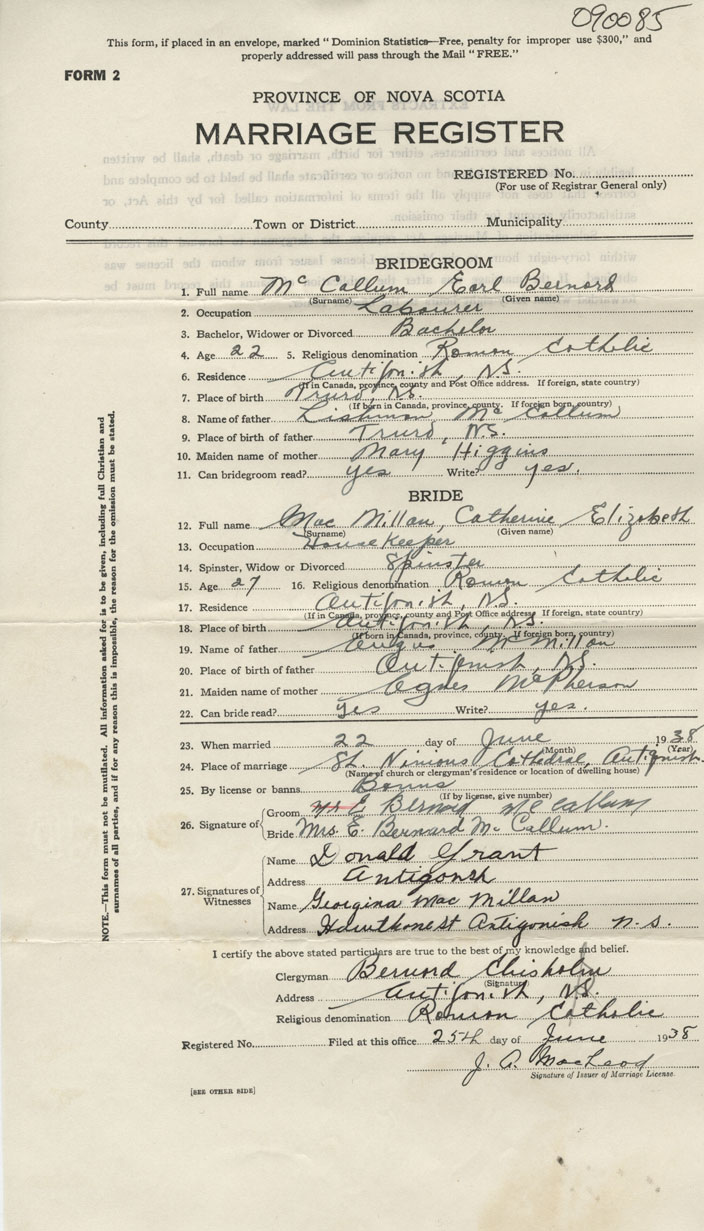 090085
This form, if placed in an envelope, marked "Dominion Statistics—Free, penalty for improper use $300," and
properly addressed will pass through the Mail "FREE."
FORM 2
PROVINCE OF NOVA SCOTIA
MARRIAGE REGISTER
REGISTERED No.
(For use of Registrar General only)
County Town or District Municipality
BRIDEGROOM
1. Full name Mc Callum Earl Bernard
(Surname) (Given name)
2. Occupation Labourer
3. Bachelor, Widower or Divorced Bachelor
4. Age 22 5. Religious denomination Roman Catholic
6. Residence Antigonish, N.S.
(If in Canada, province, county and Post Office address. If foreign, state country)
7. Place of birth Truro, N.S.
(If born in Canada, province, county. If foreign born, country)
8. Name of father Lishman Mc Callum
9. Place of birth of father Truro, N.S.
10. Maiden name of mother Mary Higgins
11. Can bridegroom read? yes Write? yes.
BRIDE
12. Full name Mac Millan, Catherine Elizabeth
(Surname) (Given name)
13. Occupation Housekeeper
14. Spinster, Widow or Divorced Spinster
15. Age 27 16. Religious denomination Roman Catholic
17. Residence Antigonish, N.S.
(If in Canada, province, county and Post Office address. If foreign, state country)
18. Place of birth Antigonish, N.S.
(If born in Canada, province, county. If foreign born, country)
19. Name of father Angus McMillan
20. Place of birth of father Antigonish, N.S.
21. Maiden name of mother Agnes McPherson
22. Can bride read? yes Write? yes.
23. When married 22 day of June 1938
(Month) (Year)
24. Place of marriage St. Ninians Cathedral, Antigonish.
(Name of church or clergyman's residence or location of dwelling house)
25. By license or banns Banns
(If by license, give number)
26. Signature of Groom E Bernard McCallum
Bride Mrs. E. Bernard McCallum.
27. Signatures of Witnesses
Name Donald Grant
Address Antigonsh
Name Georgina Mac Millan
Address Hawthorne St Antigonish N.S.
I certify the above stated particulars are true to the best of my knowledge and belief.
Clergyman Bernard Chisholm
(Signature)
Address Antigonish, N.S.
Religious denomination Roman Catholic
Registered No. Filed at this office 25th day of June 1938
J. A. MacLeod
Signature of Issuer of Marriage License.
[SEE OTHER SIDE]
NOTE.—This form must not be mutilated. All information asked for is to be given, including full Christian and
surnames of all parties, and if for any reason this is impossible, the reason for the omission must be stated.